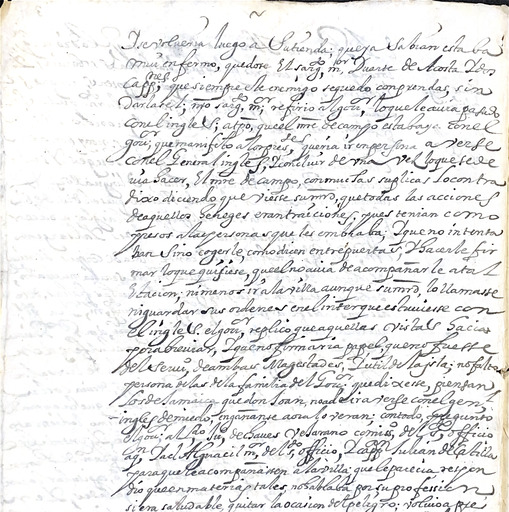 I se voluería luego a Su tienda; que ya Sabian estaba
muy enfermo, quedose El sarg.to m.or Duarte de Acosta I dos
Capp.nes, que siempre el enemigo se quedo con prendas, sin
darlas el; n̄ro sarg.to m.or refirio al gou.or lo que le auia pasado
con el ingles; assimo, que el mr̄e de campo estaba ya con el
gou.or que manifesto a los pres.tes queria ir en persona a verse
con el General ingles, I concluir de una vez lo que se de
uia hacer, El mr̄e de campo, con muchas suplicas lo contra
dixo deciendo que viesse su mrd, que todas las acciones
de aquellos hereges eran traiciones, pues tenian como
presos a las personas que les embiaba; I que no intenta
ban sino cogerle como dicen entre puertas, y hacerle fir
mar lo que quisiese, que el no auia de acompañarle a tal
traicion, ni menos ir a la villa aunque su mrd, lo llamasse
ni guardar sus ordenes en el interque estuuiesse con
el ingles. el gou.or replico que aquellas vistas hacia
para breuiar, I que no firmaria papel que no fuesse
del seruicio de ambas Magestades, I util de la isla; no falto
persona de las de la familia del Gou.or que dixesse, piensan
los de Jamaica que don Joan, no a de ir a verse con el gen.l
ingles de miedo, engañanse aora lo veran; con todo,
el gou.or al de chaues Vejarano comiss.o del s.to officio
Al Alguacil m.or del s.to officio, I capp.n Julian de Castilla
para que le acompañassen a la villa; que le parecia respon
dio que en materias tales, no hablaba por su profession
si era saludable, quitar la ocasion del peligro;